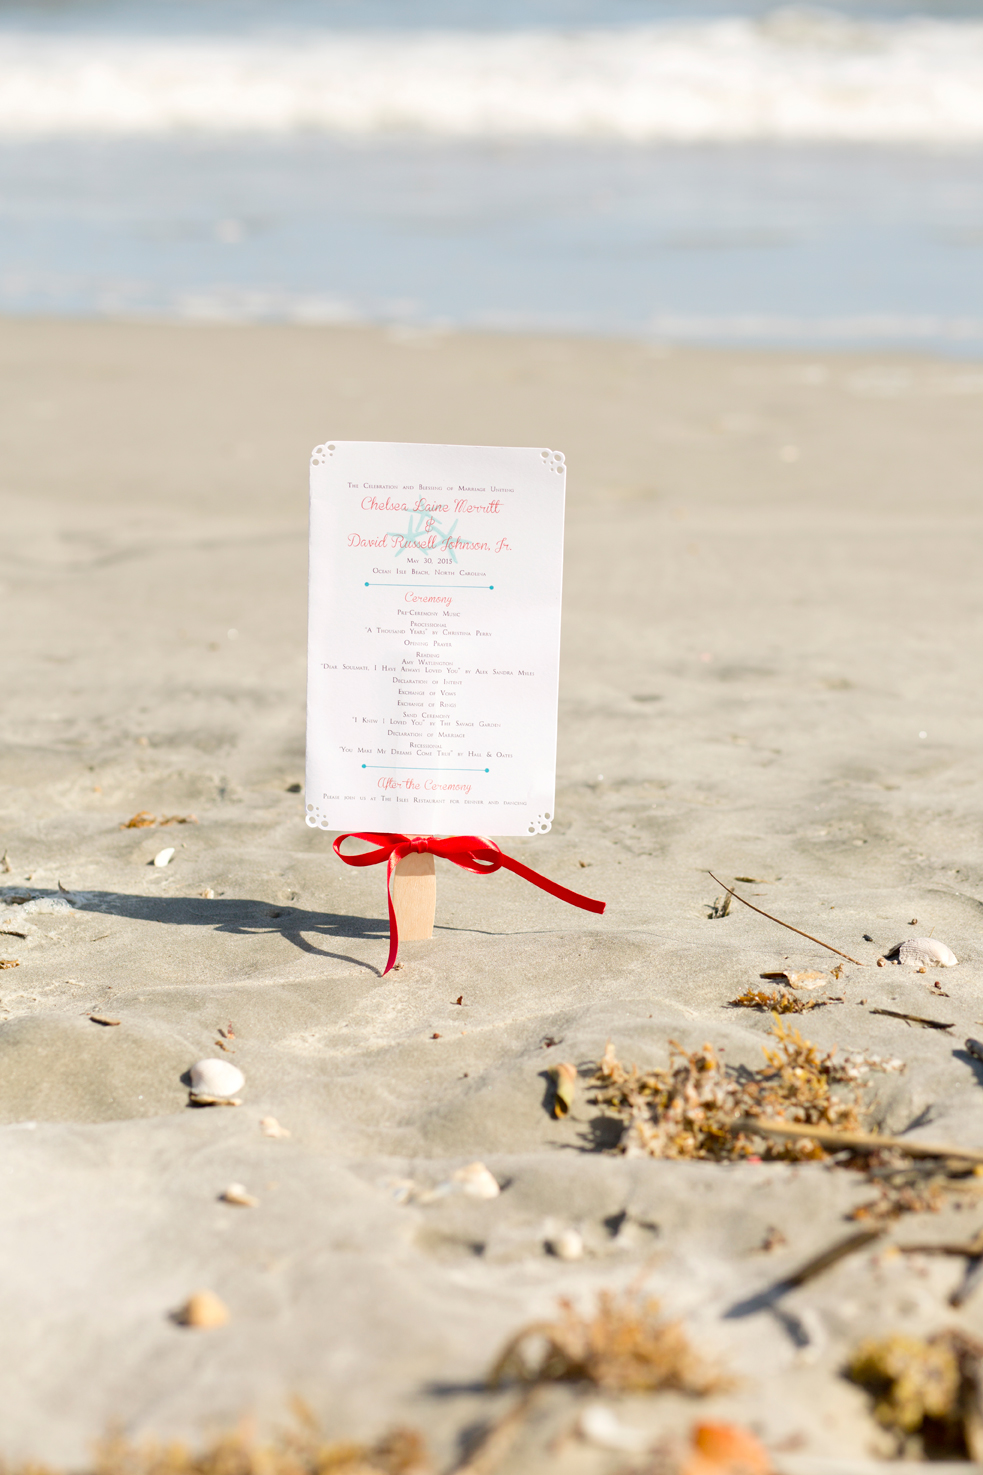 The Celebration and Blessing of Marriage Uniting
Chelsea Laine Merritt
&
David Russell Johnson, Jr.
May 30, 2015
Ocean Isle Beach, North Carolina
Ceremony
Pre-Ceremony Music
Processional
"A Thousand Years" by Christina Perri
Opening Prayer
Reading
Amy Watlington
"Dear Soulmate, I Have Always Loved You" by Alex Sandra Myles
Declaration of Intent
Exchange of Vows
Exchange of Rings
Sand Ceremony
"I Knew I Loved You" by The Savage Garden
Declaration of Marriage
Recessional
"You Make My Dreams Come True" by Hall & Oates
After the Ceremony
Please join us at The Isles Restaurant for dinner and dancing